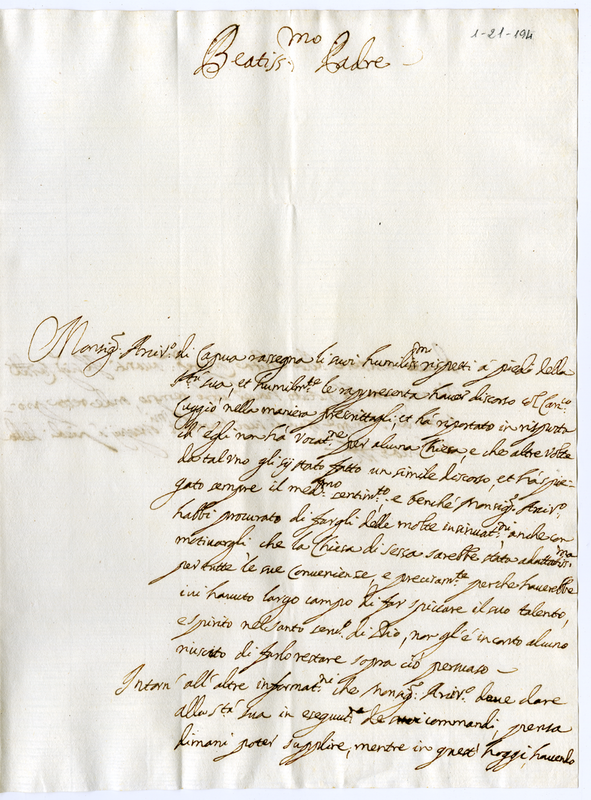 1-21-194
Beatiss.mo Padre
Monsig.r Arciv.o di Capua rassegna li suoi humiliss.mi rispetti à piedi della
S.tà sua, et humilm.te le rappresenta haver discorso col Can.co
Cuggiò nella maniera prescrittagli; et hà riportato in risposta
ch'egli non hà vocat.ne per alcuna Chiesa e che altre volte
da taluno gli sij stato fatto un simile discorso, et hà spie-
gato sempre il med.mo sentim.to e benche Monsig.r Arciv.o
habbi procurato di fargli delle molte insinuat.ni, anche con
motivargli che la Chiesa di Sessa sarebbe stata adattatiss.ma
per tutte le sue convenienze, e precisam.te perche haverebbe
ivi havuto largo campo di far spiccare il suo talento,
e spirito nel santo serv.o di Dio, non gl'è in conto alcuno
riuscito di farlo restare sopra ciò persuaso
Intorn' all'altre informat.ni che Monsig.r Arciv.o deve dare
alla S.tà sua in esecut.ne de commandi, pensa
dimani poter supplire, mentre in quest' hoggi, havendo